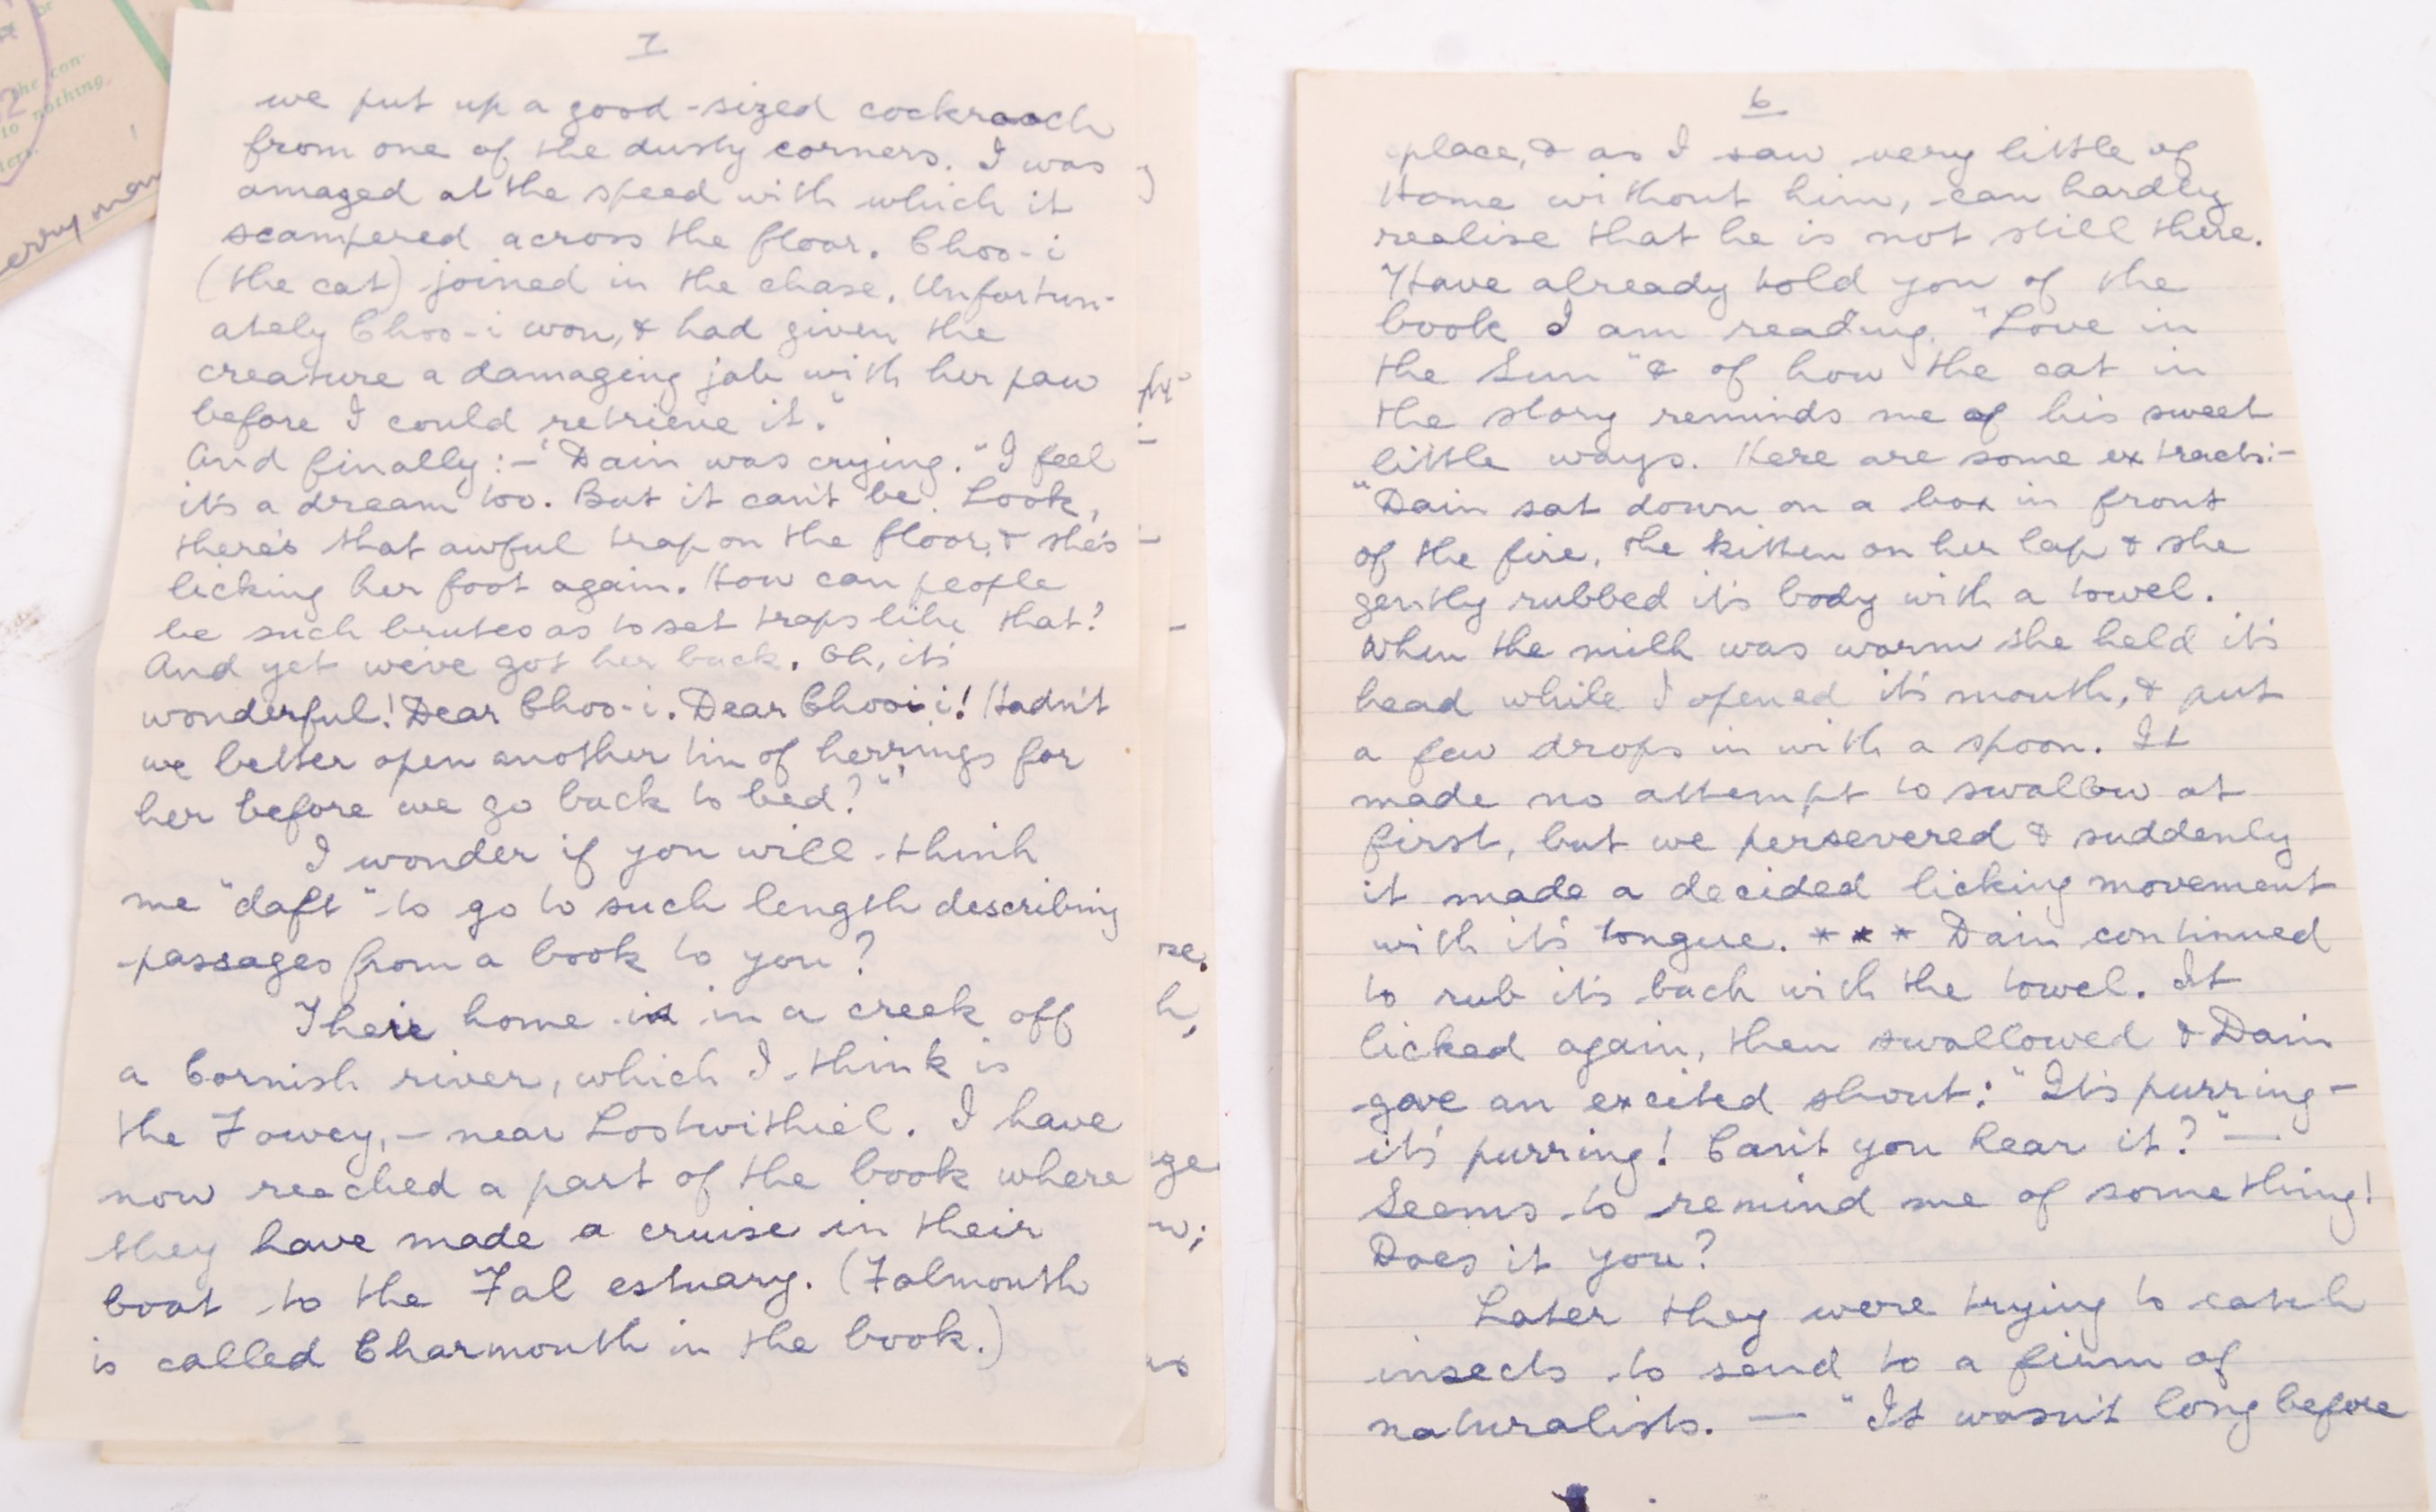 7
we put up a good-sized cockroach
from one of the dusty corners. I was
amazed at the speed with which it
scampered across the floor. Choo-i
(the cat) joined in the chase. Unfortun-
ately Choo-i won, & had given the
creature a damaging jab with her paw
before I could retrieve it."
And finally:- 'Dain was crying. "I feel
it's a dream too. But it can't be. Look,
there's that awful trap on the floor, & she's
licking her foot again. How can people
be such brutes as to set traps like that?
And yet we've got her back. Oh, it's
wonderful! Dear Choo-i. Dear Choo-i! Hadn't
we better open another tin of herrings for
her before we go back to bed?"'
I wonder if you will think
me "daft" to go to such length describing
passages from a book to you?
Their home is in a creek off
a Cornish river, which I think is
the Fowey, - near Lostwithiel. I have
now reached a part of the book where
they have made a cruise in their
boat to the Fal estuary. (Falmouth
is called Charmouth in the book.)
6
place, & as I saw very little of
Home without him, can hardly
realise that he is not still there.
Have already told you of the
book I am reading. "Love in
the Sun" & of how the cat in
the story reminds me of his sweet
little ways. Here are some extracts:-
"Dain sat down on a box in front
of the fire, the kitten on her lap & she
gently rubbed it's body with a towel.
When the milk was warm she held it's
head while I opened it's mouth, & put
a few drops in with a spoon. It
made no attempt to swallow at
first, but we persevered & suddenly
it made a decided licking movement
with it's tongue. * * * Dain continued
to rub it's back with the towel. It
licked again, then swallowed & Dain
gave an excited shout: "It's purring -
it's purring! Can't you hear it?" —
Seems to remind me of something!
Does it you?
Later they were trying to catch
insects to send to a firm of
naturalists. — "It wasn't long before
the con-
to nothing.
re.
h,
ge
w;